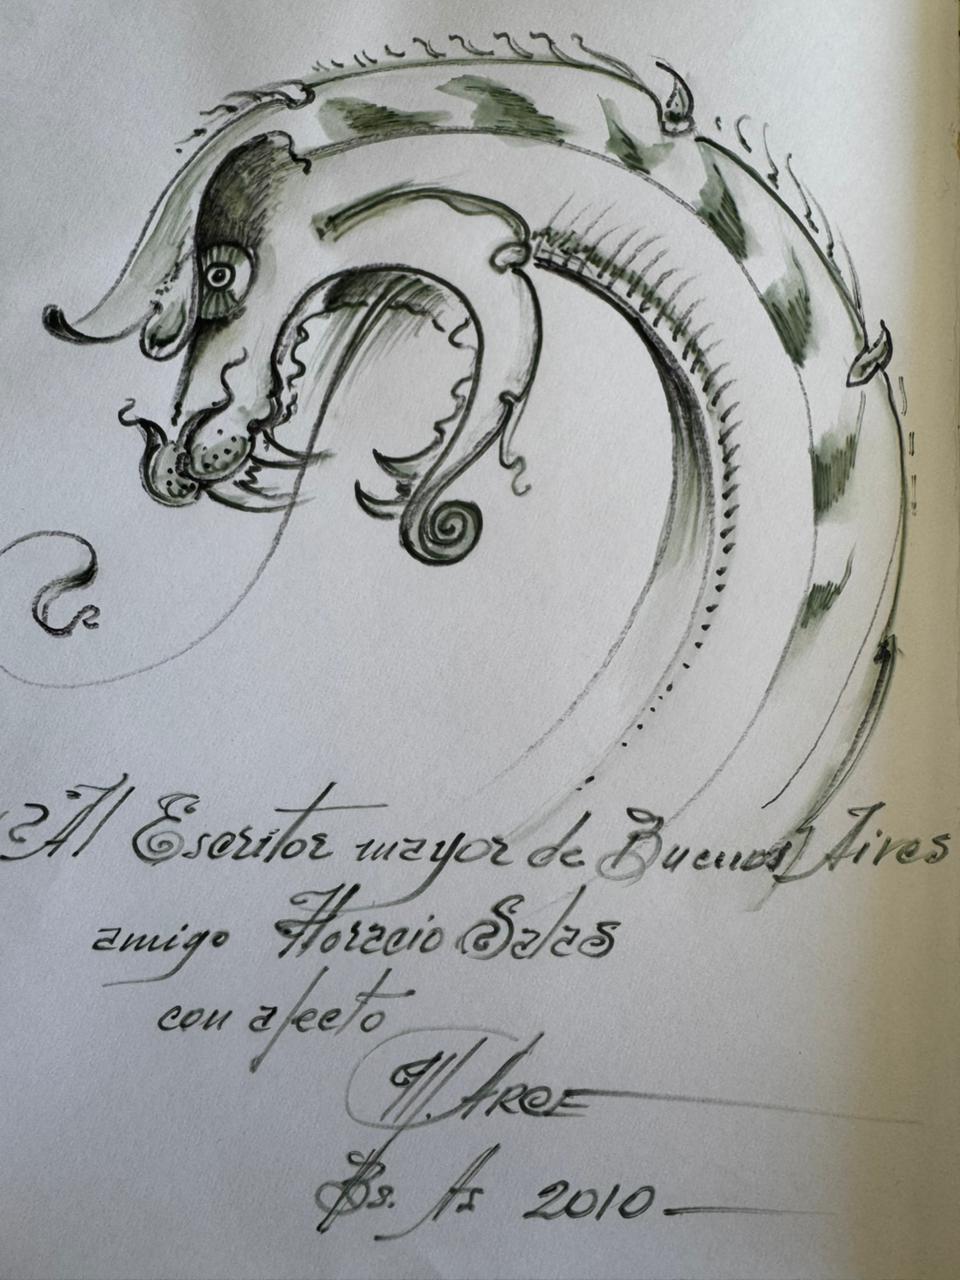 Al Escritor mayor de Buenos Aires
amigo Horacio Salas
con afecto
M. ARCE
Bs. As 2010